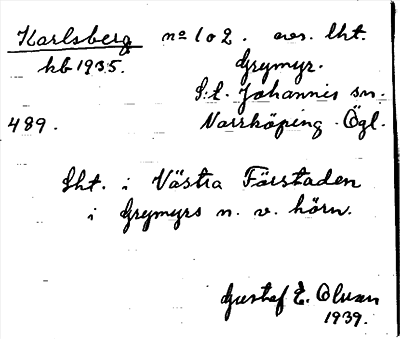 Karlsberg nº 1 o 2. avs. lht.
hb 1935. Grymyr.
S:t. Johannis sn.
489. Norrköping. Ögl.
Lht. i Västra Förstaden
i Grymyrs n. v. hörn.
Gustaf E. Olsson
1939.